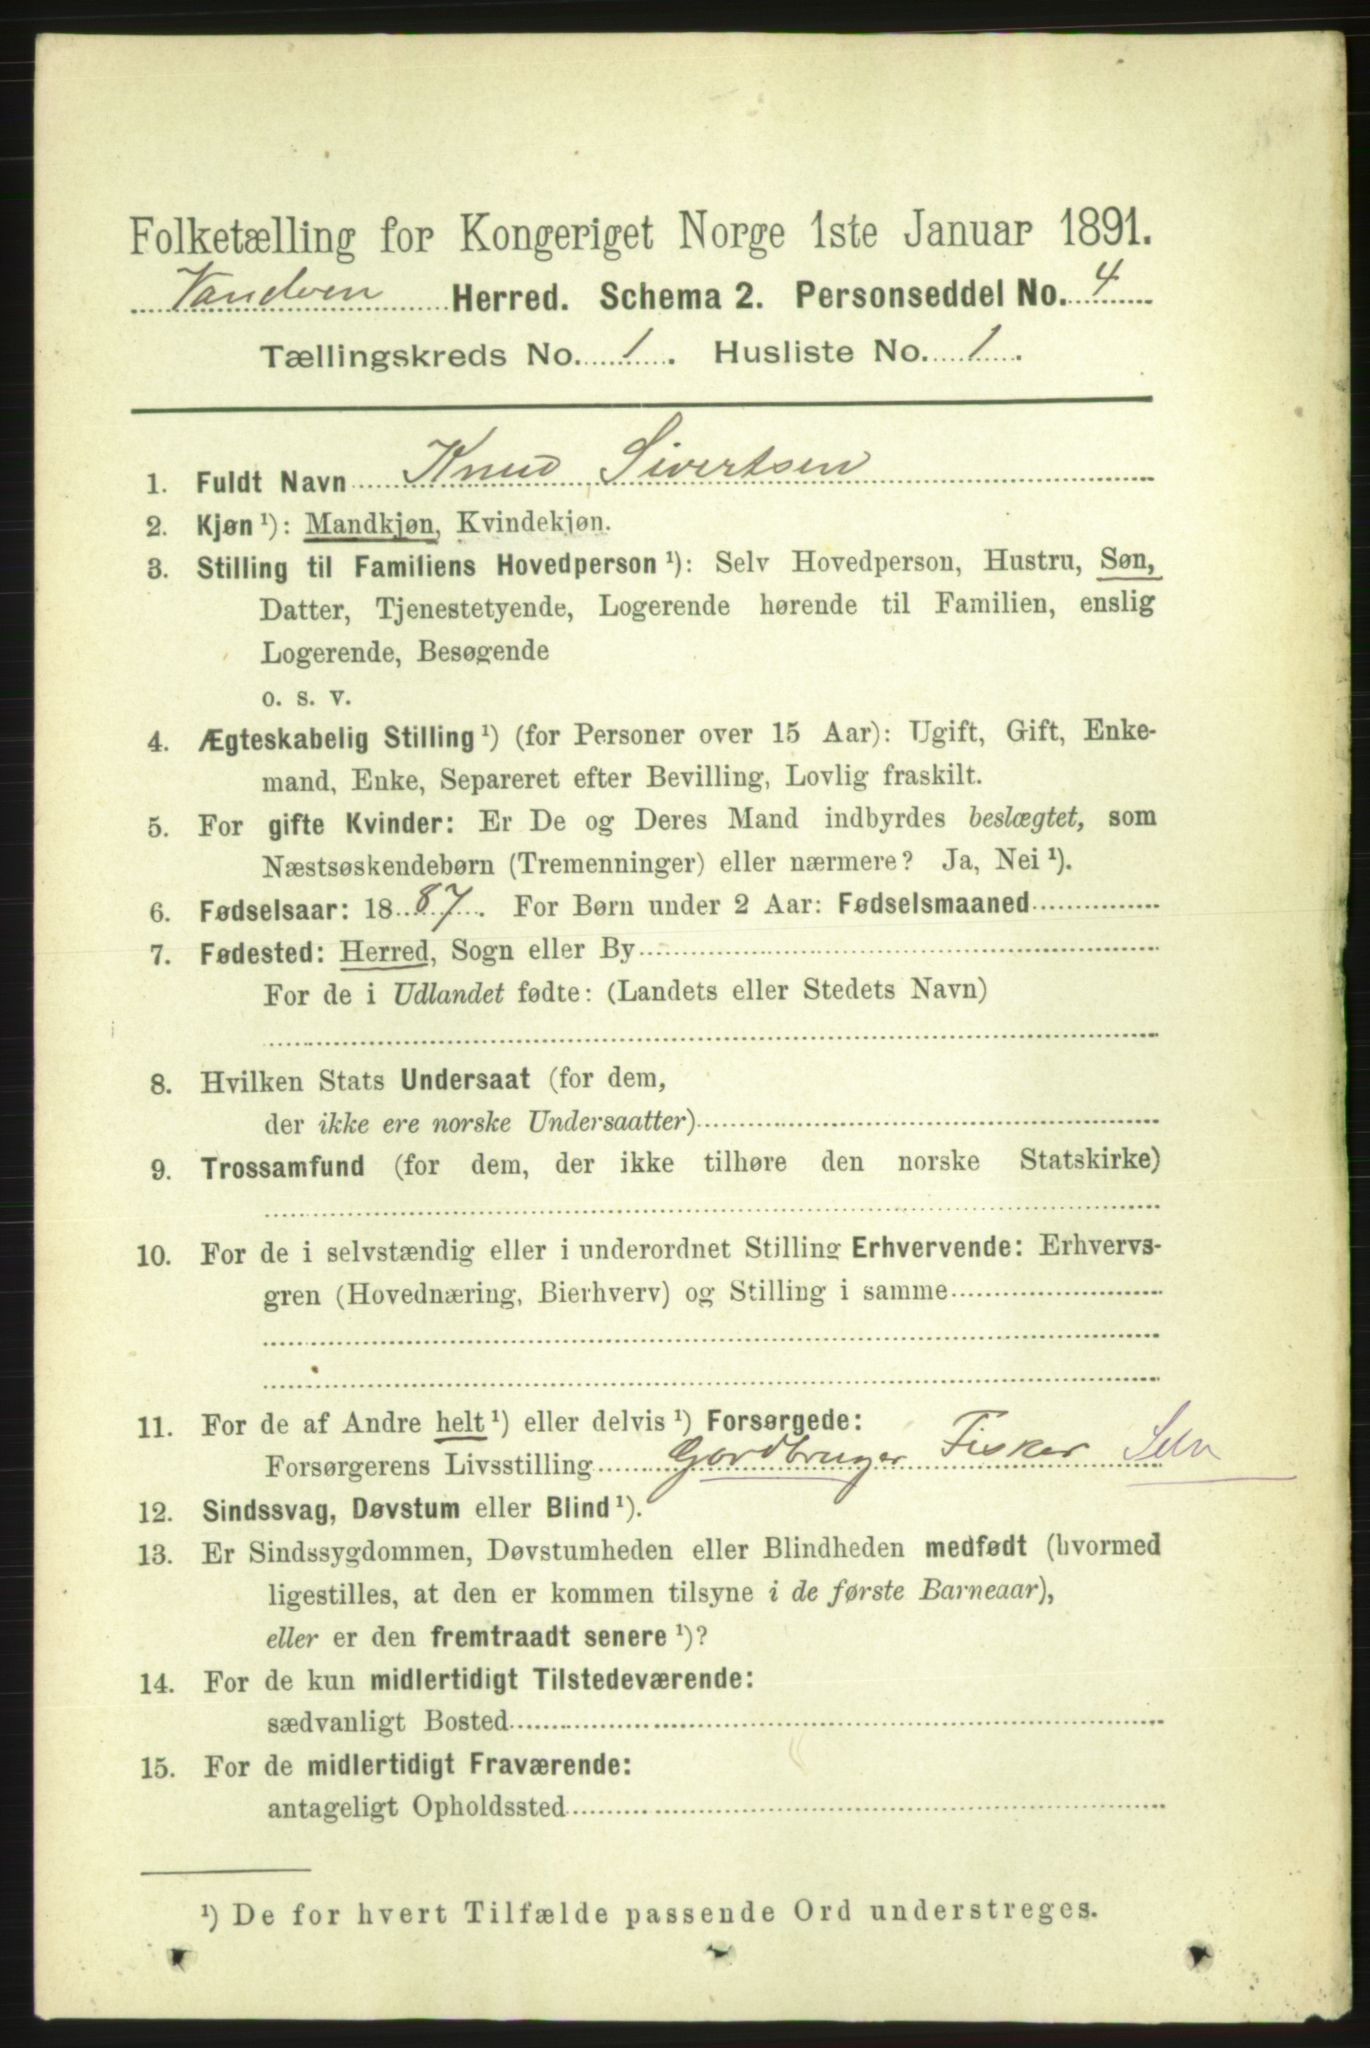 Folketælling for Kongeriget Norge 1ste Januar 1891.
Vandven Herred. Schema 2. Personseddel No. 4
Tællingskreds No. 1. Husliste No. 1.
1. Fuldt Navn Knud Sivertsen
2. Kjøn ¹): Mandkjøn, Kvindekjøn.
3. Stilling til Familiens Hovedperson ¹): Selv Hovedperson, Hustru, Søn,
Datter, Tjenestetyende, Logerende hørende til Familien, enslig
Logerende, Besøgende
o. s. v.
4. Ægteskabelig Stilling ¹) (for Personer over 15 Aar): Ugift, Gift, Enke-
mand, Enke, Separeret efter Bevilling, Lovlig fraskilt.
5. For gifte Kvinder: Er De og Deres Mand indbyrdes beslægtet, som
Næstsøskendebørn (Tremenninger) eller nærmere? Ja, Nei ¹).
6. Fødselsaar: 1887. For Børn under 2 Aar: Fødselsmaaned
7. Fødested: Herred, Sogn eller By
For de i Udlandet fødte: (Landets eller Stedets Navn)
8. Hvilken Stats Undersaat (for dem,
der ikke ere norske Undersaatter)
9. Trossamfund (for dem, der ikke tilhøre den norske Statskirke)
10. For de i selvstændig eller i underordnet Stilling Erhvervende: Erhvervs-
gren (Hovednæring, Bierhverv) og Stilling i samme
11. For de af Andre helt ¹) eller delvis ¹) Forsørgede:
Forsørgerens Livsstilling Gardbruger Fisker Selv
12. Sindssvag, Døvstum eller Blind ¹).
13. Er Sindssygdommen, Døvstumheden eller Blindheden medfødt (hvormed
ligestilles, at den er kommen tilsyne i de første Barneaar),
eller er den fremtraadt senere ¹)?
14. For de kun midlertidigt Tilstedeværende:
sædvanligt Bosted
15. For de midlertidigt Fraværende:
antageligt Opholdssted
¹) De for hvert Tilfælde passende Ord understreges.